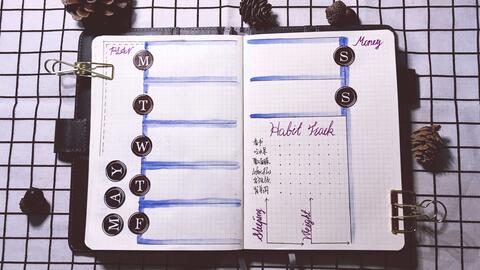 PLAN
M
T
W
T
F
M
A
Y
S
S
Money
Habit Track
Sleeping
Weight